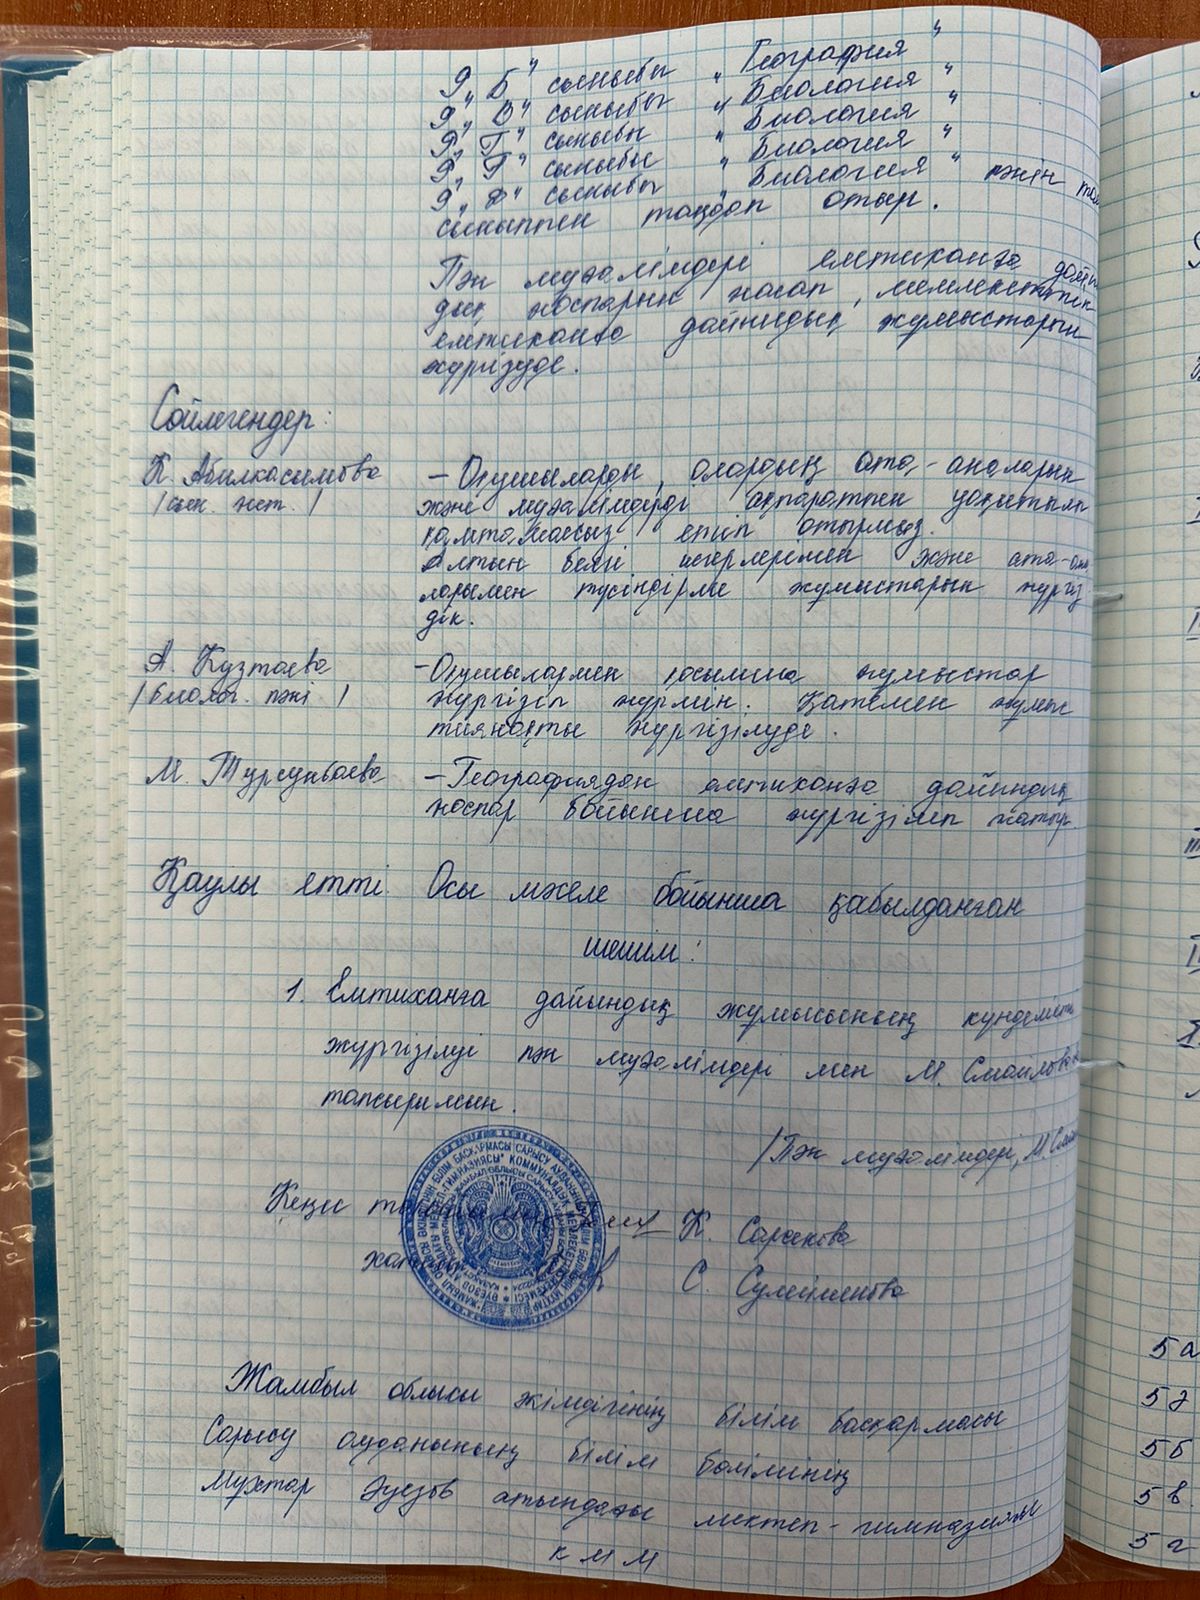 9 „Б" сыныбы „География"
9 „В" сыныбы „Биология"
9 „Г" сыныбы „Биология"
9 „Ғ" сыныбы „Биология"
9 „Д" сыныбы „Биология" пәнін
сыныптен таңдап отыр.
Пән мұғалімдері емтиханға дайын
дық жоспарын жасап, мемлекеттік
емтиханға дайындық жұмыстарын
жүргізуде.
Сөйлегендер:
К. Абилкасымова - Оқушыларды, олардың ата-аналарын
және мұғалімдерді ақпаратпен уақытылы
қамтамасыз етіп отырмыз.
Алтын белгі иегерлерімен және ата-ана
ларымен түсіндірме жұмыстарын жүргіз
дік.
А. Кузтаева - Оқушылармен қосымша жұмыстар
/биолог. пәні/ жүргізіп жүрмін. Қатемен жұмыс
тиянақты жүргізілуде.
М. Турсунбаева - Географиядан емтиханға дайындық
жоспар бойынша жүргізіліп жатыр.
Қаулы етті Осы мәселе бойынша қабылданған
шешім:
1. Емтиханға дайындық жұмысының күнделікті
жүргізілуі пән мұғалімдері мен М. Смайловаға
тапсырылсын.
/Пән мұғалімдері, М.
Кеңес К. Саракова
С. Сулейменова
Жамбыл облысы әкімдігінің білім басқармасы
Сарысу ауданының білім бөлімінің
Мұхтар Әуезов атындағы мектеп-гимназиясы
КММ
5а
5ә
5б
5в
5г